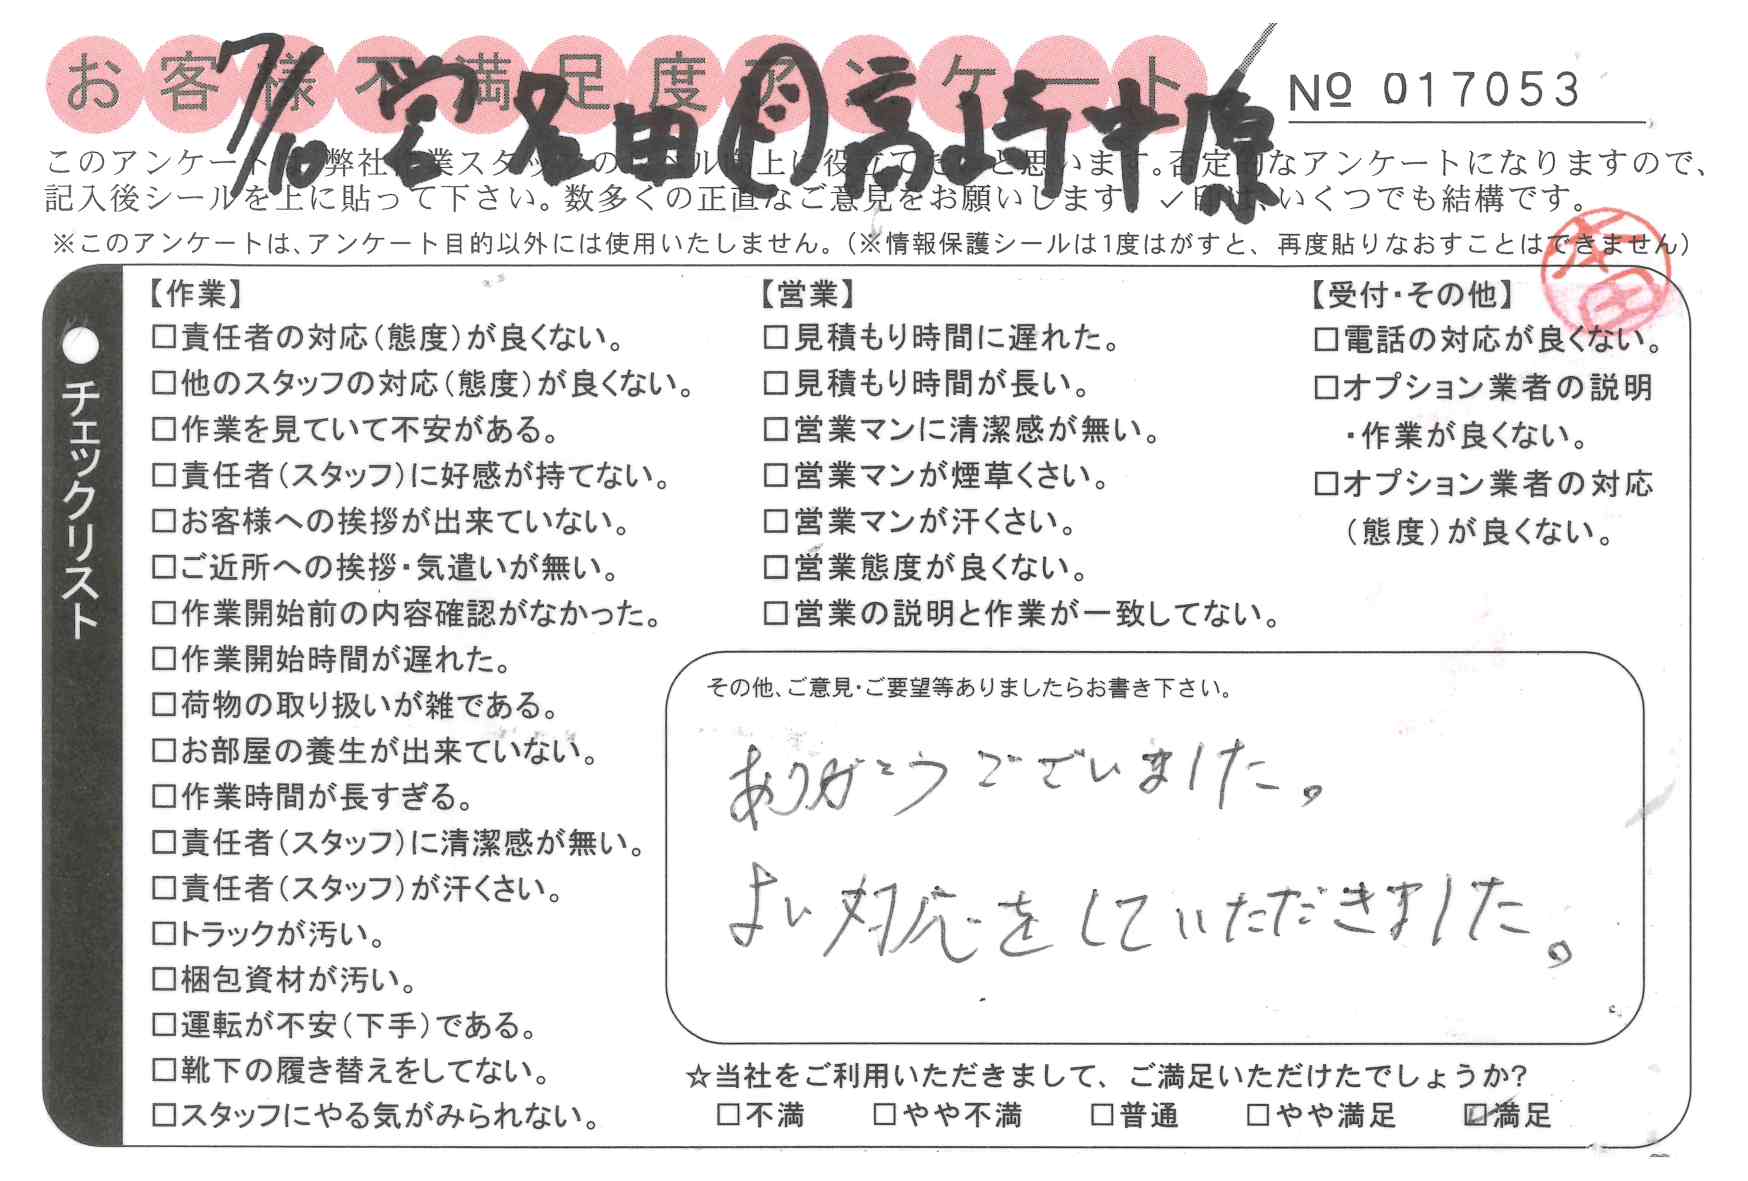 お客様不満足度アンケート
№ 017053
7/10 営 名田 ド 高崎 中原
このアンケートは、弊社作業スタッフのレベル向上に役立てたいと思います。否定的なアンケートになりますので、
記入後シールを上に貼って下さい。数多くの正直なご意見をお願いします。✓印は、いくつでも結構です。
※このアンケートは、アンケート目的以外には使用いたしません。(※情報保護シールは1度はがすと、再度貼りなおすことはできません)
チェックリスト
【作業】
□責任者の対応(態度)が良くない。
□他のスタッフの対応(態度)が良くない。
□作業を見ていて不安がある。
□責任者(スタッフ)に好感が持てない。
□お客様への挨拶が出来ていない。
□ご近所への挨拶・気遣いが無い。
□作業開始前の内容確認がなかった。
□作業開始時間が遅れた。
□荷物の取り扱いが雑である。
□お部屋の養生が出来ていない。
□作業時間が長すぎる。
□責任者(スタッフ)に清潔感が無い。
□責任者(スタッフ)が汗くさい。
□トラックが汚い。
□梱包資材が汚い。
□運転が不安(下手)である。
□靴下の履き替えをしてない。
□スタッフにやる気がみられない。
【営業】
□見積もり時間に遅れた。
□見積もり時間が長い。
□営業マンに清潔感が無い。
□営業マンが煙草くさい。
□営業マンが汗くさい。
□営業態度が良くない。
□営業の説明と作業が一致してない。
【受付・その他】
□電話の対応が良くない。
□オプション業者の説明
・作業が良くない。
□オプション業者の対応
(態度)が良くない。
その他、ご意見・ご要望等ありましたらお書き下さい。
ありがとうございました。
よい対応をしていただきました。
☆当社をご利用いただきまして、ご満足いただけたでしょうか?
□不満 □やや不満 □普通 □やや満足 ☑満足